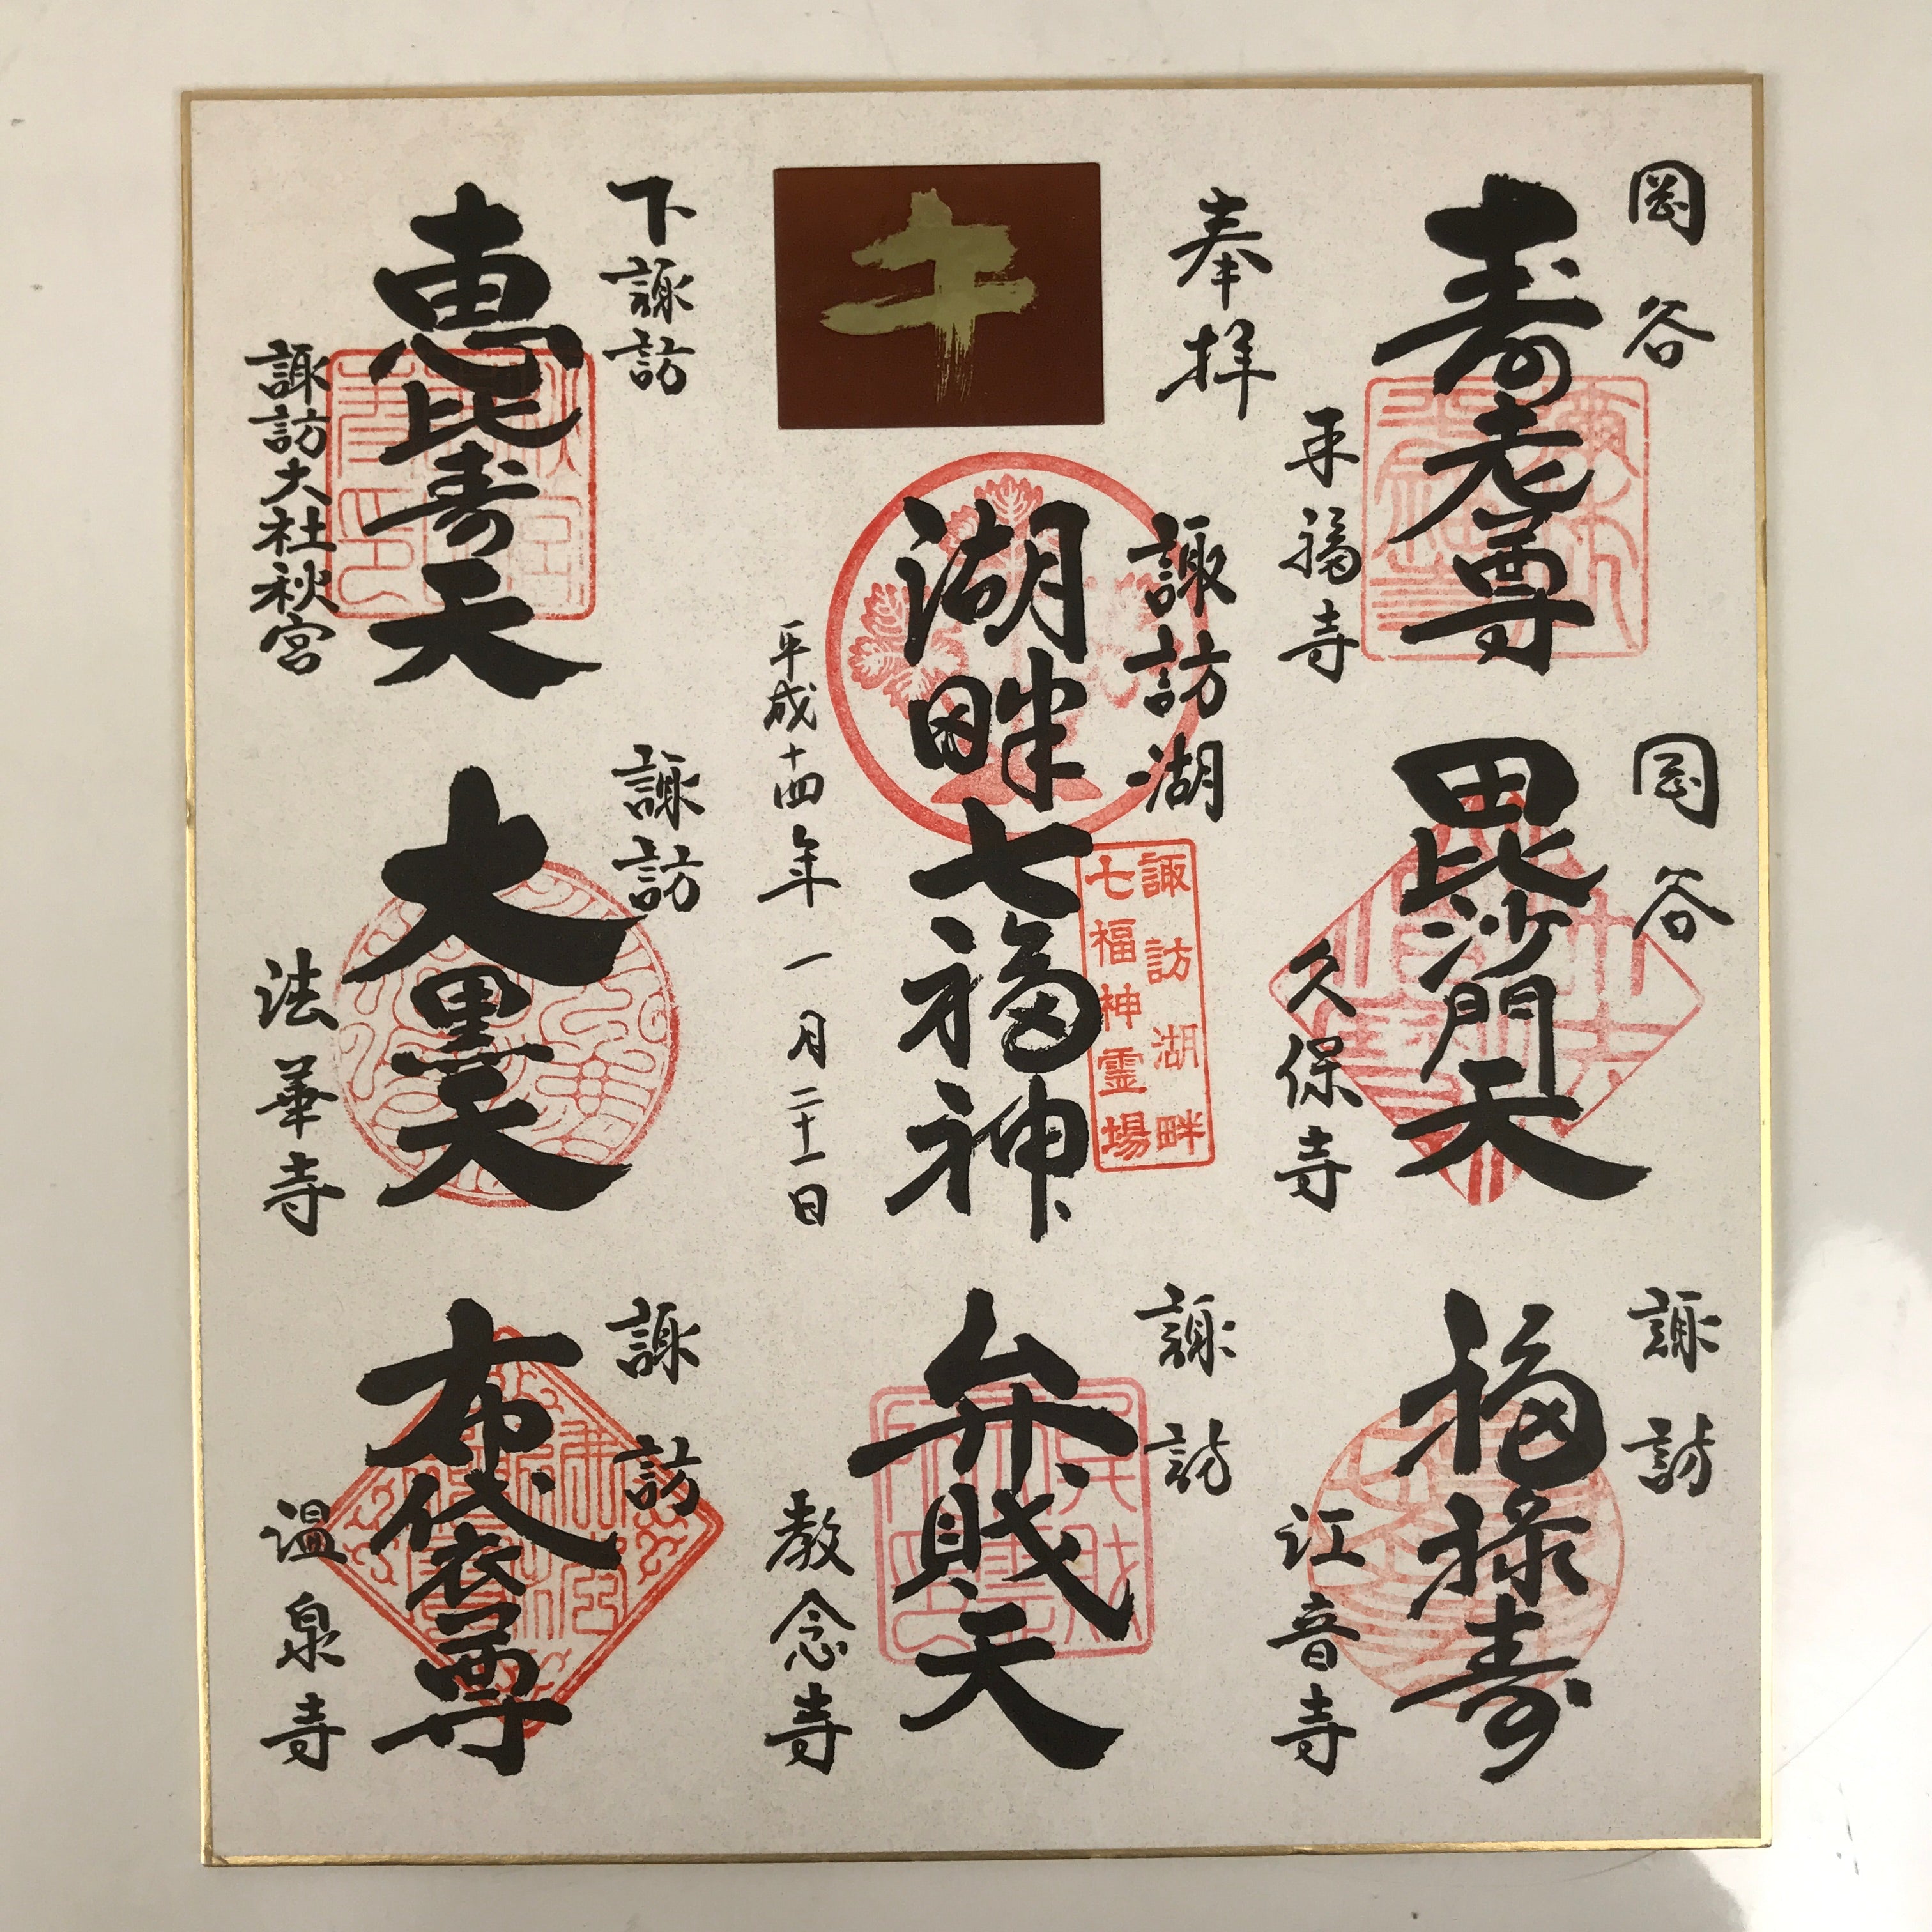 岡谷
寿老尊
平福寺
岡谷
毘沙門天
久保寺
諏訪
福禄寿
江音寺
奉拝
諏訪湖
湖畔七福神
諏訪湖畔
七福神霊場
平成十四年一月二十一日
諏訪
弁財天
教念寺
下諏訪
恵比寿天
諏訪大社秋宮
諏訪
大黒天
法華寺
諏訪
布袋尊
温泉寺